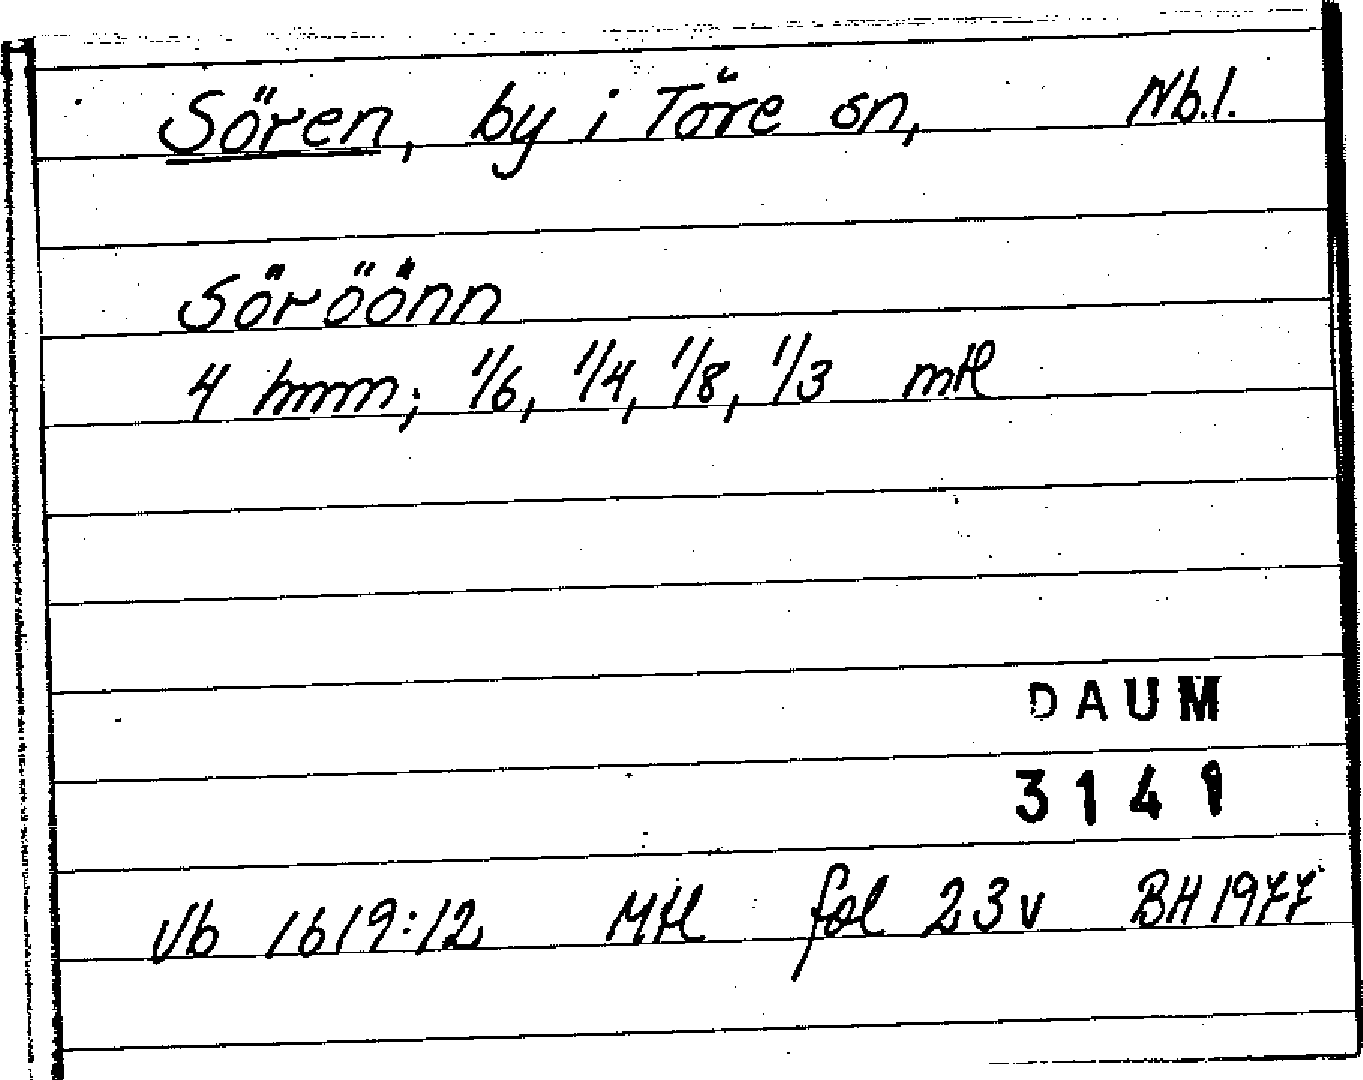 Sören, by i Töre sn, Nb.l.
Söröönn
4 hmm; 1/6, 1/4, 1/8, 1/3 mtl
DAUM
3141
Vb 1619:12 Mtl fol 23v BH 1977